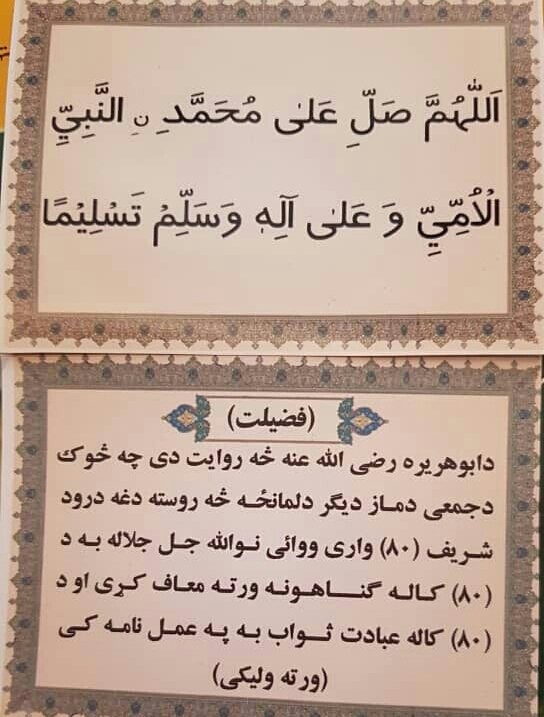 اَللّٰهُمَّ صَلِّ عَلٰى مُحَمَّدِ نِ النَّبِيِّ
الْاُمِّيِّ وَ عَلٰى آلِهٖ وَسَلِّمْ تَسْلِيْمًا
(فضیلت)
دابوهریره رضی الله عنه څه روایت دی چه څوك
دجمعی دماز دیگر دلمانځـه څه روسته دغه درود
شریف (۸۰) واری ووائی نـوالله جـل جلاله به د
(۸۰) کـالـه گنـــاهـونـه ورتـه معـاف کـړی او د
(۸۰) کاله عبادت ثـواب بـه پـه عمـل نامـه کـی
(ورته ولیکی)